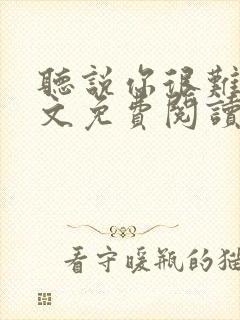 聽說你很難
文免費閱讀
看守暖瓶的猫